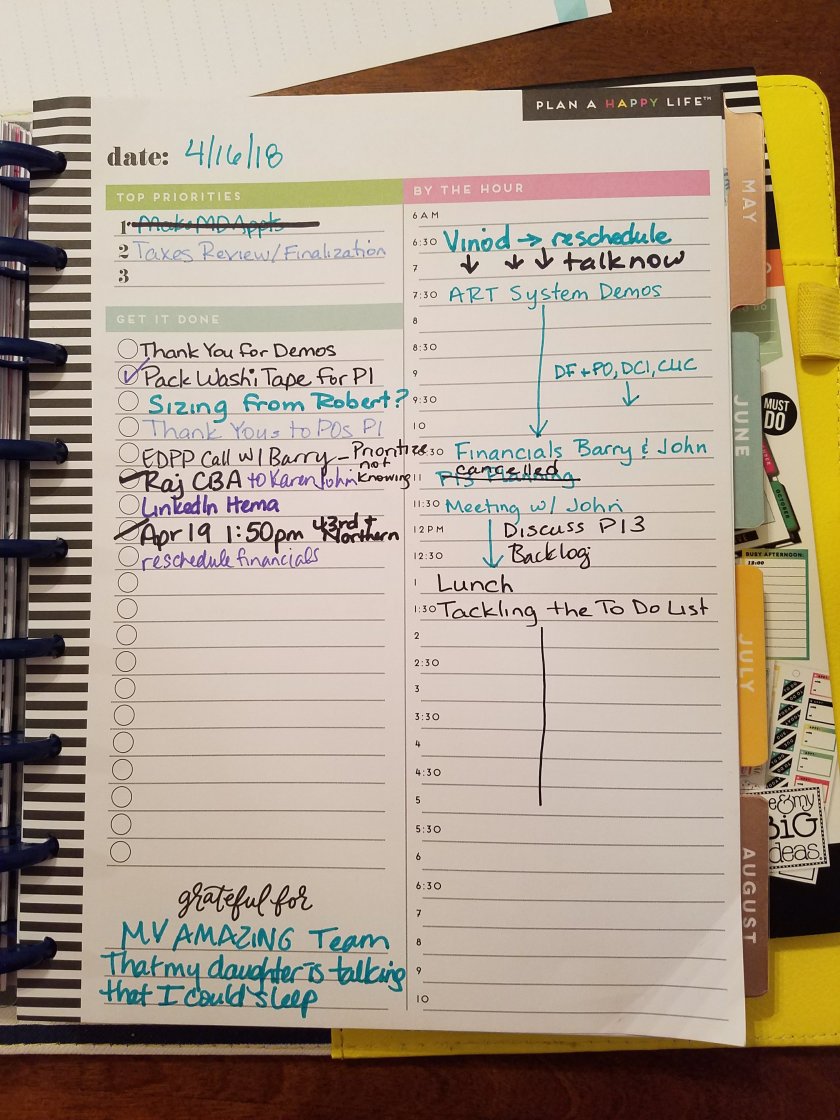 PLAN A HAPPY LIFE™
date: 4/16/18
TOP PRIORITIES
1 Make MD Appts
2 Taxes Review/Finalization
3
GET IT DONE
Thank You for Demos
Pack Washi Tape for PI
Sizing from Robert?
Thank Yous to POs PI
EDPP Call w/ Barry - Prioritize
not
knowing
Raj CBA to Karen John
LinkedIn Hema
Apr 19 1:50pm 43rd +
Northern
reschedule financials
grateful for
MY AMAZING Team
That my daughter is talking
that I could sleep
BY THE HOUR
6 AM
6:30 Vinod → reschedule
7 ↓ ↓ ↓ talk now
7:30 ART System Demos
8
8:30
9 DF + PO, DCI, CLIC
9:30
10
10:30 Financials Barry & John
cancelled
11 PI3 Planning
11:30 Meeting w/ John
12 PM Discuss PI3
12:30 Backlog
1 Lunch
1:30 Tackling the To Do List
2
2:30
3
3:30
4
4:30
5
5:30
6
6:30
7
8
9
10
MAY
JUNE
JULY
AUGUST
MUST
DO
BUSY AFTERNOON:
12:00
me & my
BiG
ideas.